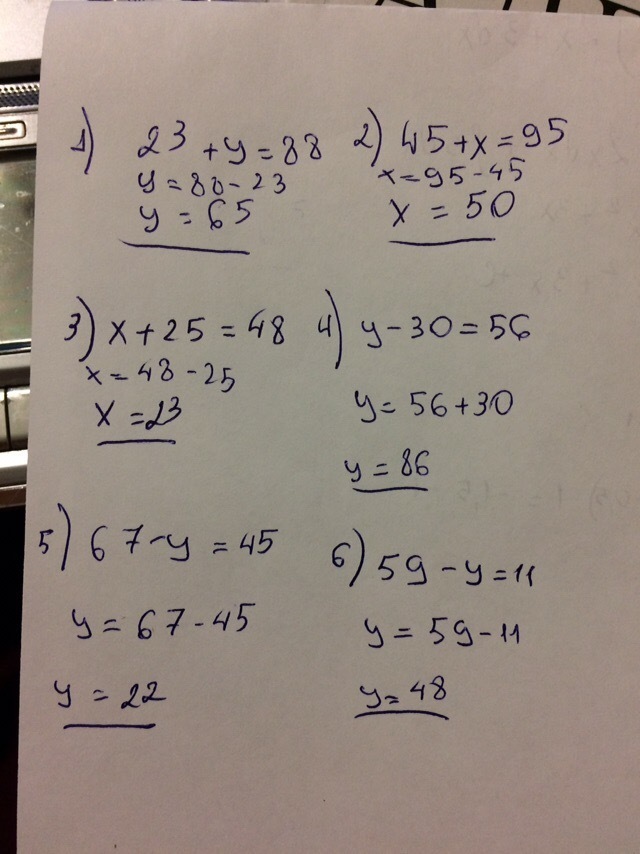 1) 23 + y = 88
y = 88 - 23
y = 65
2) 45 + x = 95
x = 95 - 45
x = 50
3) x + 25 = 48
x = 48 - 25
x = 23
4) y - 30 = 56
y = 56 + 30
y = 86
5) 67 - y = 45
y = 67 - 45
y = 22
6) 59 - y = 11
y = 59 - 11
y = 48